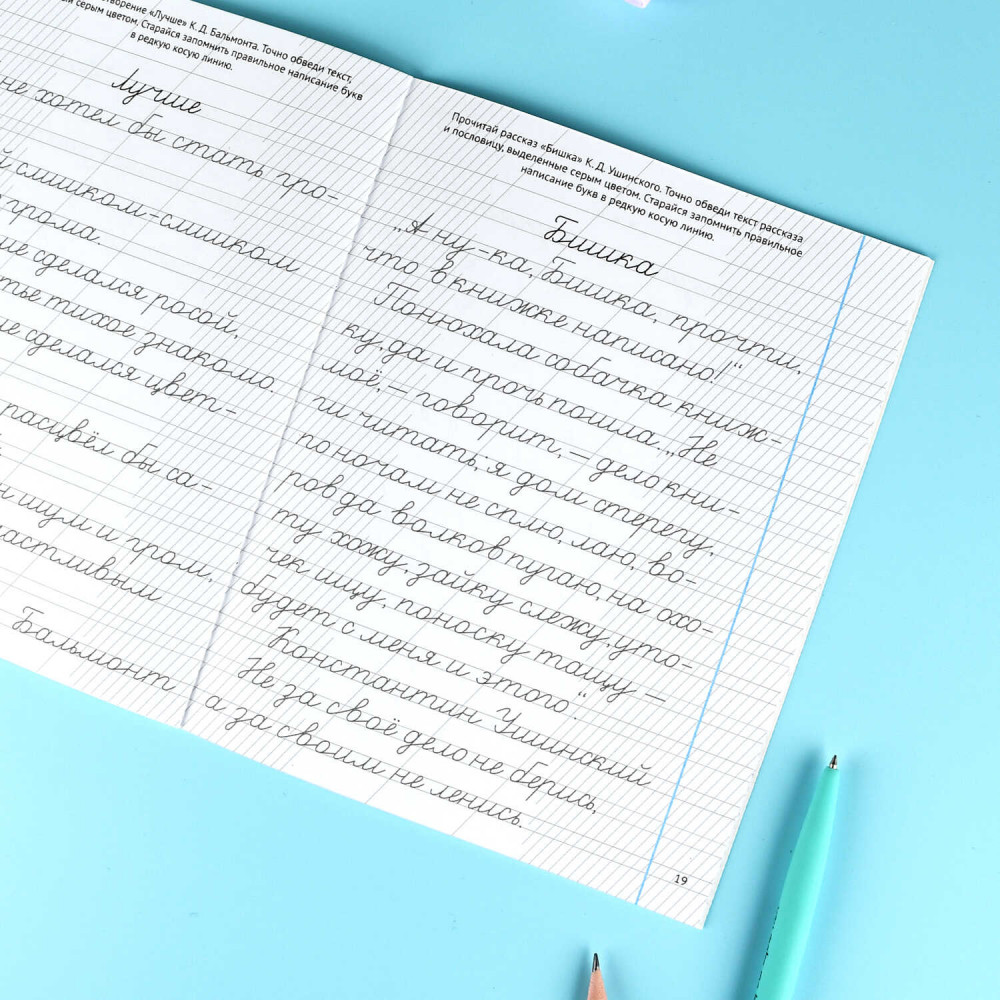 творение «Лучше» К. Д. Бальмонта. Точно обведи текст,
серым цветом. Старайся запомнить правильное написание букв
в редкую косую линию.
Лучше
не хотел бы стать гро-
слишком-слишком
грома.
сделался росой,
тихое знакомо.
сделался цвет-
расцвёл бы са-
шум и гром,
Бальмонт
Прочитай рассказ «Бишка» К. Д. Ушинского. Точно обведи текст рассказа
и пословицу, выделенные серым цветом. Старайся запомнить правильное
написание букв в редкую косую линию.
Бишка
„А ну-ка, Бишка, прочти,
что в книжке написано!“
Понюхала собачка книж-
ку, да и прочь пошла. „Не
моё, – говорит, – дело кни-
ги читать; я дом стерегу,
по ночам не сплю, лаю, во-
ров да волков пугаю, на охо-
ту хожу, зайку слежу, уто-
чек ищу, поноску тащу –
будет с меня и этого“.
Константин Ушинский
Не за своё дело не берись,
а за своим не ленись.
19